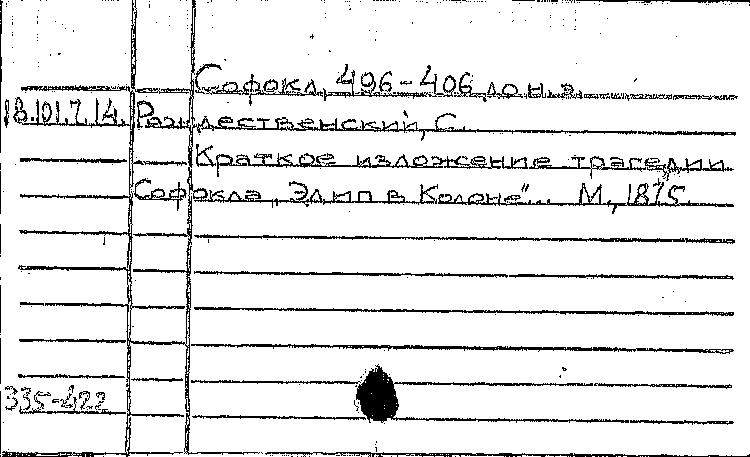 Софокл, 496-406 до н.э.
18.101.7.14. Рождественский, С.
Краткое изложение трагедии
Софокла „Эдип в Колоне"... М., 1875.
335-422